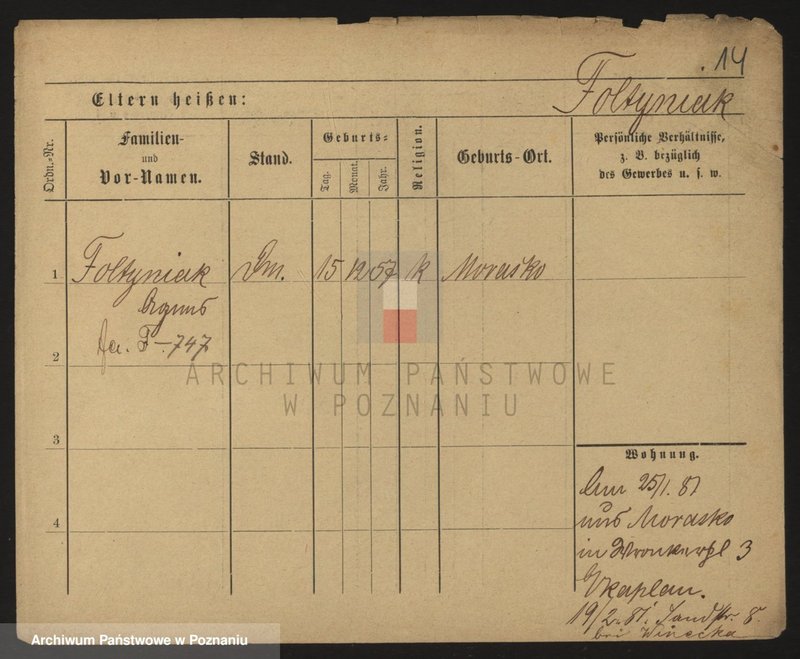 14
Foltyniak
Eltern heißen:
Ordn.-Nr.
Familien-
und
Vor-Namen.
Stand.
Geburts-
Tag.
Monat.
Jahr.
Religion.
Geburts-Ort.
Persönliche Verhältnisse,
z. B. bezüglich
des Gewerbes u. s. w.
1 Foltyniak 15 12 57 k Morasko
Agnes
F-747
2
3
4
ARCHIWUM PAŃSTWOWE
W POZNANIU
Wohnung.
25/1. 81
aus Morasko
in Wronkerpl 3
Kaplan.
19/2. 81. Sandstr. 8.
bei Winecka
Archiwum Państwowe w Poznaniu